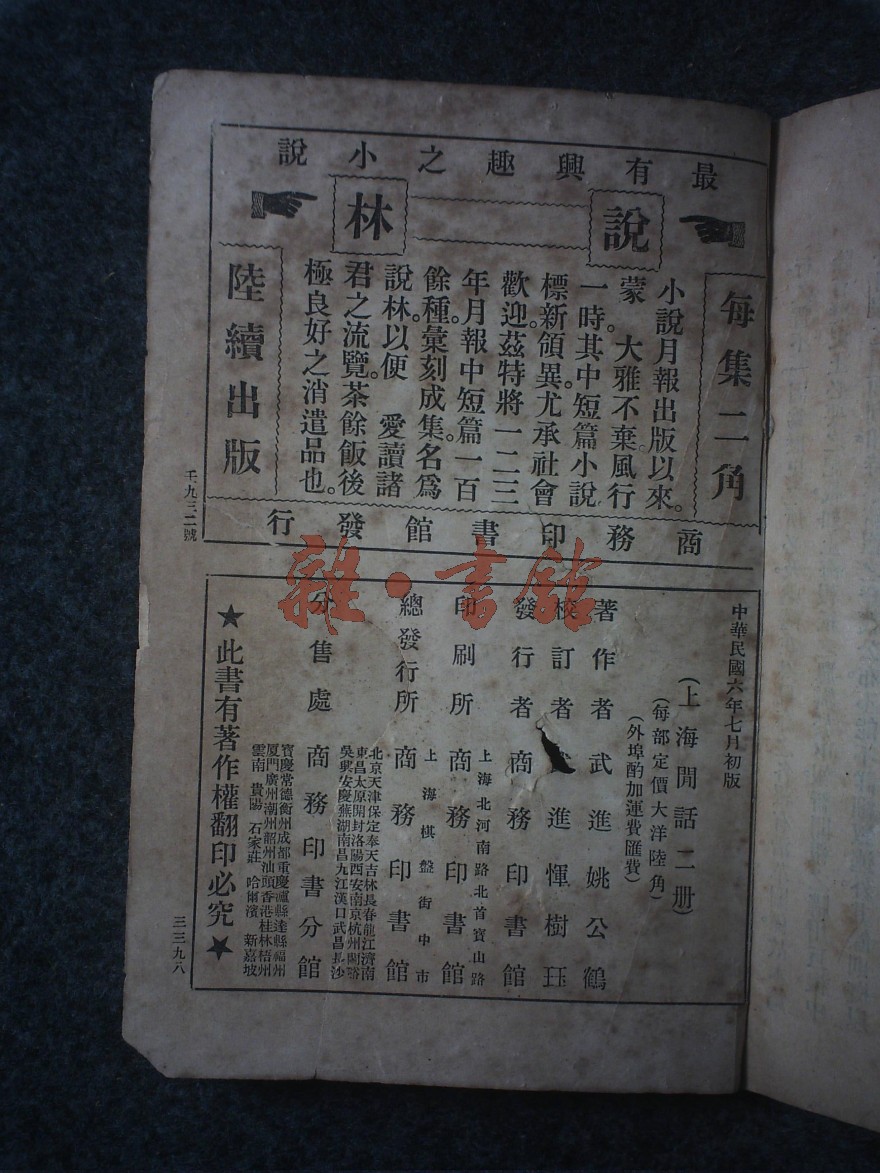 最有興趣之小說
說林
每集二角
小說月報出版以來。
蒙 大雅不棄。風行
一時。其中短篇小說
標新領異。尤承社會
歡迎。茲特將一二三
年月報中短篇一百
餘種。彙刻成集。名爲
說林。以便 愛讀諸
君之流覽。茶餘飯後
極良好之消遣品也。
陸續出版
商務印書館發行
壬九三二號
中華民國六年七月初版
(上海閒話二册)
(每部定價大洋陸角)
(外埠酌加運費匯費)
著作者 武進姚公鶴
校訂者 進惲樹珏
發行者 商務印書館
上海北河南路北首寶山路
印刷所 商務印書館
上海棋盤街中市
總發行所 商務印書館
北京天津保定奉天吉林長春龍江濟南
東昌太原開封洛陽西安南京杭州蘭谿
吳興安慶蕪湖南昌九江漢口武昌長沙
分售處 商務印書分館
寶慶常德衡州成都重慶瀘縣達縣福州
廈門廣州潮州韶州汕頭香港桂林梧州
雲南 貴陽 石家莊 哈爾濱 新嘉坡
★此書有著作權翻印必究★
三三九八
雜·書館